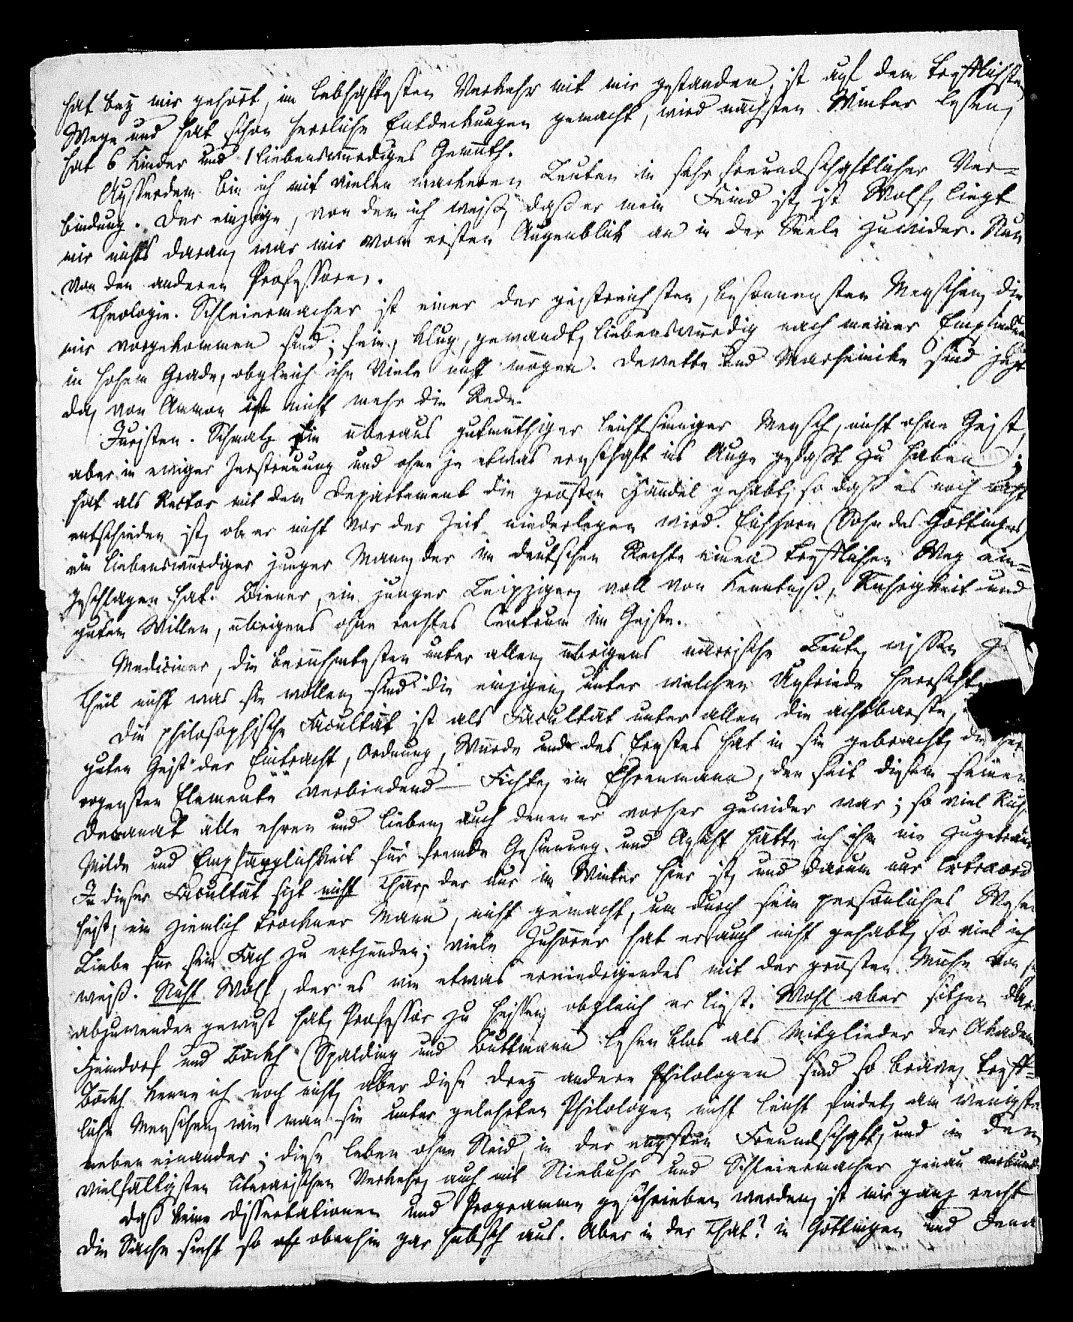 hat bey mir gehört, im lebhaftesten Verkehr mit mir gestanden, ist auf dem trefflichsten
Wege und hat schon herrliche Entdeckungen gemacht, wird nächsten Winter lesen,
hat 6 Kinder und 1 liebenswürdiges Gemüth.
Ausserdem bin ich mit vielen wackeren Leuten in sehr freundschaftlicher Ver-
bindung. Der einzige, von dem ich weiß, daß er mein Feind ist, ist Wolf, liegt
mir nichts daran, war mir vom ersten Augenblik an in der Seele zuwider. Nun
von den anderen Professoren.
Theologie. Schleiermacher ist einer der geistreichsten, besonnensten Menschen, die
mir vorgekommen sind; fein, klug, gewandt, liebenswürdig nach meiner Empfindung
in hohem Grade, obgleich ihn Viele nicht mögen. Dewette und Marheinicke sind jetzt
da, von Ammon ist nicht mehr die Rede.
Juristen. Schmalz ein überaus gutmüthiger leichtsinniger Mensch, nicht ohne Geist,
aber in ewiger Zerstreuung und ohne je etwas ernsthaft ins Auge gefaßt zu haben;
hat als Rector mit dem Departement die grösten Händel gehabt, so daß es noch nicht
entschieden ist, ob er nicht vor der Zeit niederlegen wird. Eichhorn (Sohn des Göttingers)
ein liebenswürdiger junger Mann, der im deutschen Rechte einen trefflichen Weg ein-
geschlagen hat. Biener, ein junger Leipziger, voll von Kenntniß, Ruhigkeit und
gutem Willen, übrigens ohne rechtes Centrum im Geiste.
Mediciner, die berühmtesten unter allen, übrigens närrische Leute, wissen z
Theil nicht was sie wollen, sind die einzigen, unter welchen Unfriede herrscht.
Die philosophische Facultät ist als Facultät unter allen die achtbarste,
guten Geist der Eintracht, Ordnung, Würde und des Ernstes hat in sie gebracht, die he
rogensten Elemente verbindend — Fichte, ein Ehrenmann, den seit diesem seinem
Decanat alle ehren und lieben, auch denen er vorher zuwider war; so viel Ruhe
Milde und Empfänglichkeit für fremde Gesinnung und Ansicht hätte ich ihm nie zugetraut
In dieser Facultät sizt nicht Thaer, der nur im Winter hier ist, und darum nur Extraord
heißt, ein ziemlich trockner Mann, nicht gemacht, um durch sein persönliches Wesen
Liebe für sein Fach zu entzünden; viele Zuhörer hat er auch nicht gehabt, so viel ich
weiß. Nicht Wolf, der es wie etwas erniedrigendes mit der grösten Mühe von s
abzuwenden gewust hat, Professor zu heissen, obgleich er liest. Wohl aber sitzen dar
Heindorf und Böckh (Spalding und Buttmann lesen blos als Mitglieder der Akademie
Böckh kenne ich noch nicht, aber diese drey andere Philologen sind so brave, treff-
liche Menschen, wie man sie unter gelehrten Philologen nicht leicht findet, am wenigsten
neben einander; diese leben ohne Neid, in der engsten Freundschaft, und in dem
vielfältigsten literarischen Verkehr, auch mit Niebuhr und Schleiermacher genau verbund
Daß keine Dissertationen und Programme geschrieben werden, ist mir ganz recht
die Sache sieht so obenhin gar hübsch aus. Aber in der That? in Göttingen und Jena